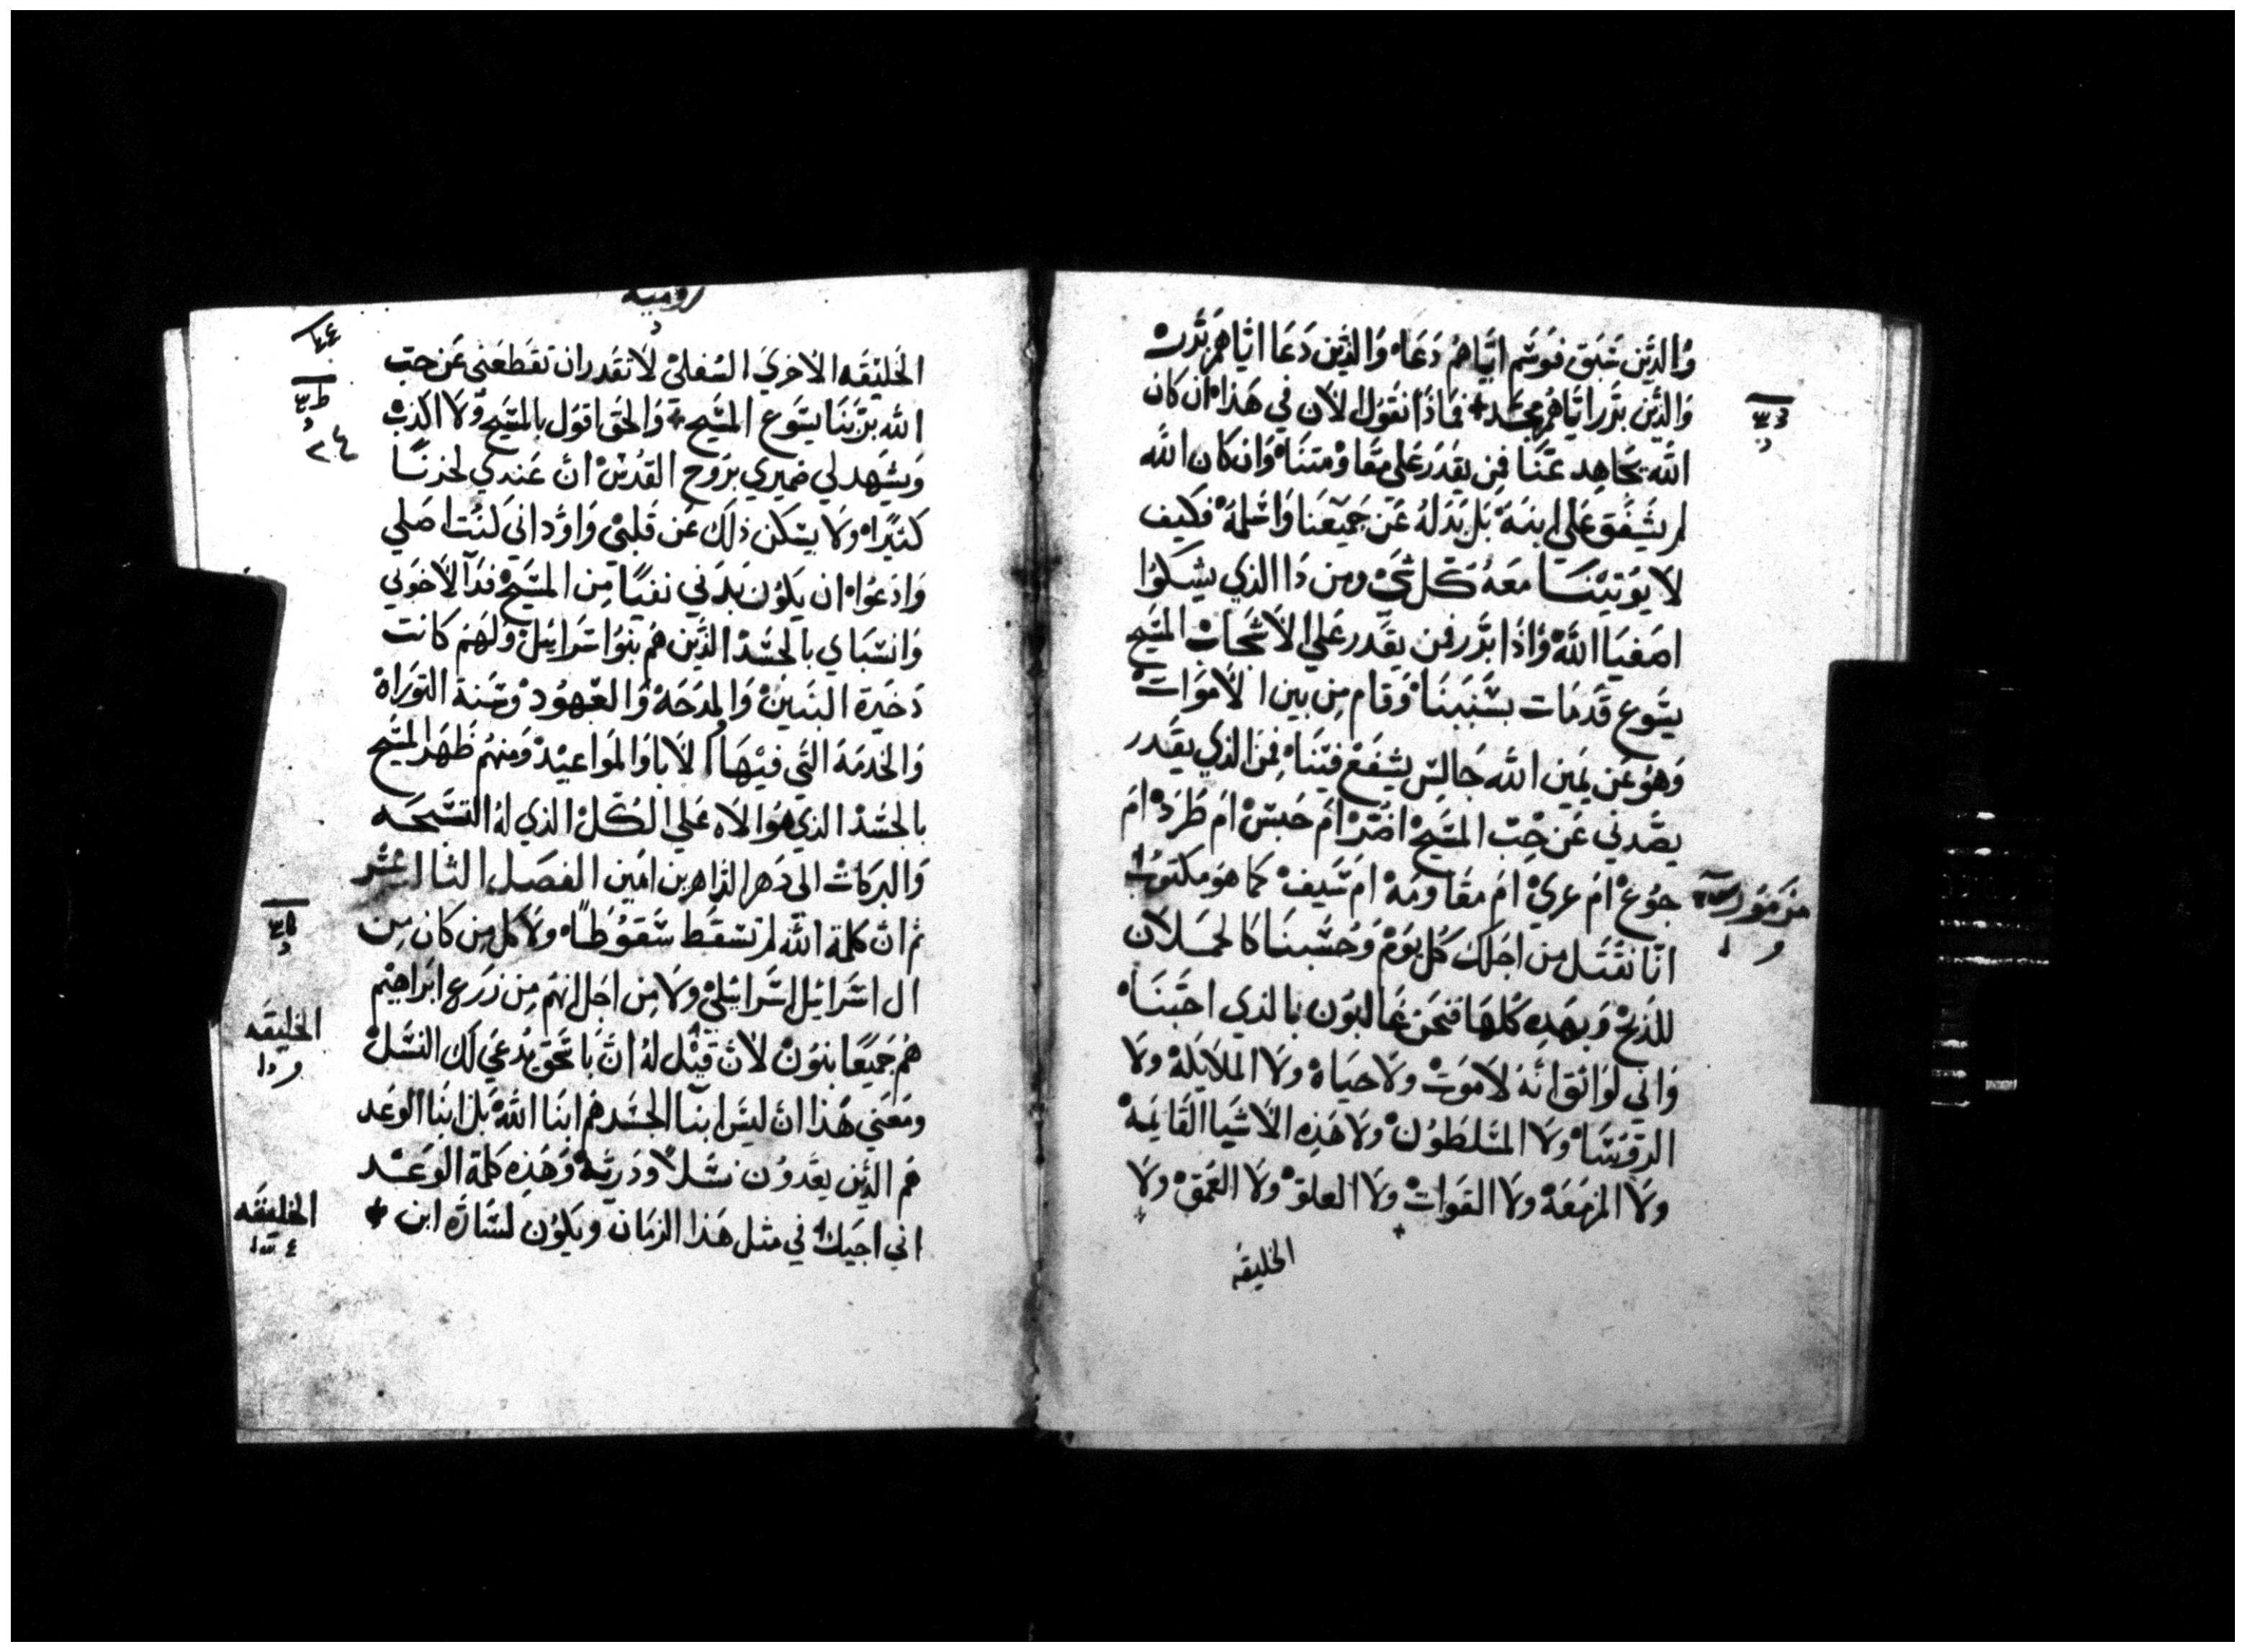 والذين سبق فوسم اياهم دعاه والذين دعا اياهم برر
والذين برر اياهم مجد فماذا نقول الان في هذا ان كان
الله يجاهد عنا فمن يقدر علي مقاومتنا وان كان الله
لم يشفق علي ابنه بل بدله عن جميعنا واسلمه فكيف
لا يوتينا معه كل شي ومن دا الذي يشكوا
اصفيا الله واذا برر فمن يقدر علي الاشجاب المسيح
يسوع قدمات بسببنا وقام من بين الاموات
وهو عن يمين الله جالس يشفع فينا فمن الذي يقدر
يصدني عن حب المسيح اضر ام حبس ام طرد ام
جوع ام عري ام مقاومه ام سيف كما هو مكتوب
مزمور
انا نقتل من اجلك كل يوم وحسبنا كالحملان
للذبح وبهده كلها فنحن غالبون بالذي احبنا
واني لواثق انه لا موت ولا حياه ولا الملايكه ولا
الروسا ولا المسلطون ولا هذه الاشيا القايمه
ولا المزمعه ولا القوات ولا العلو ولا العمق ولا
الخليقه
روميه
الخليقه الاخري السفلي لا تقدر ان تقطعني عن حب
الله بربنا يسوع المسيح والحق اقول بالمسيح ولا اكذب
ويشهد لي ضميري بروح القدس ان عندي لحزنا
كثيرا ولا يسكن ذلك عن قلبي واود اني لنت اصلي
وادعوا ان يكون بدني نفيا من المسيح فدا لاخوتي
وانسباي بالجسد الذين هم بنوا سراييل ولهم كانت
دخيرة البنين والمدحه والعهود وسنة التوراه
والخدمه التي فيها الابا والمواعيد ومنهم ظهر المسيح
بالجسد الذي هو الاه علي الكل الذي له التسبحه
والبركات الى دهر الداهرين امين الفصل الثا عشر
ثم ان كلمة الله لم تسقط سقوطا ولا كل من كان من
ال اسراييل اسراييلي ولا من اجل انهم من زرع ابراهيم
الخليقه
هم جميعا بنون لان قيل له ان باسحق يدعي لك النسل
ومعني هذا ان ليس ابنا الجسد هم ابنا الله بل ابنا الوعد
هم الذين يعدون نسلا ودرية وهذه كلمة الوعد
الخليقه
اني اجيك في مثل هذا الزمان ويكون لساره ابن